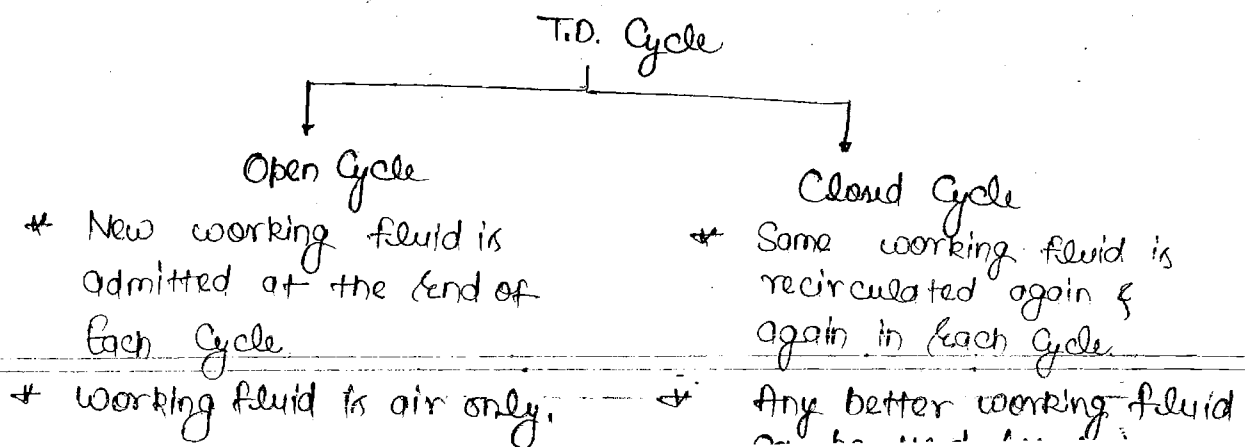 T.D. Cycle
Open Cycle
* New working fluid is
admitted at the end of
Each Cycle
* working fluid is air only.
Closed Cycle
* Same working fluid is
recirculated again &
again in each Cycle.
* Any better working fluid